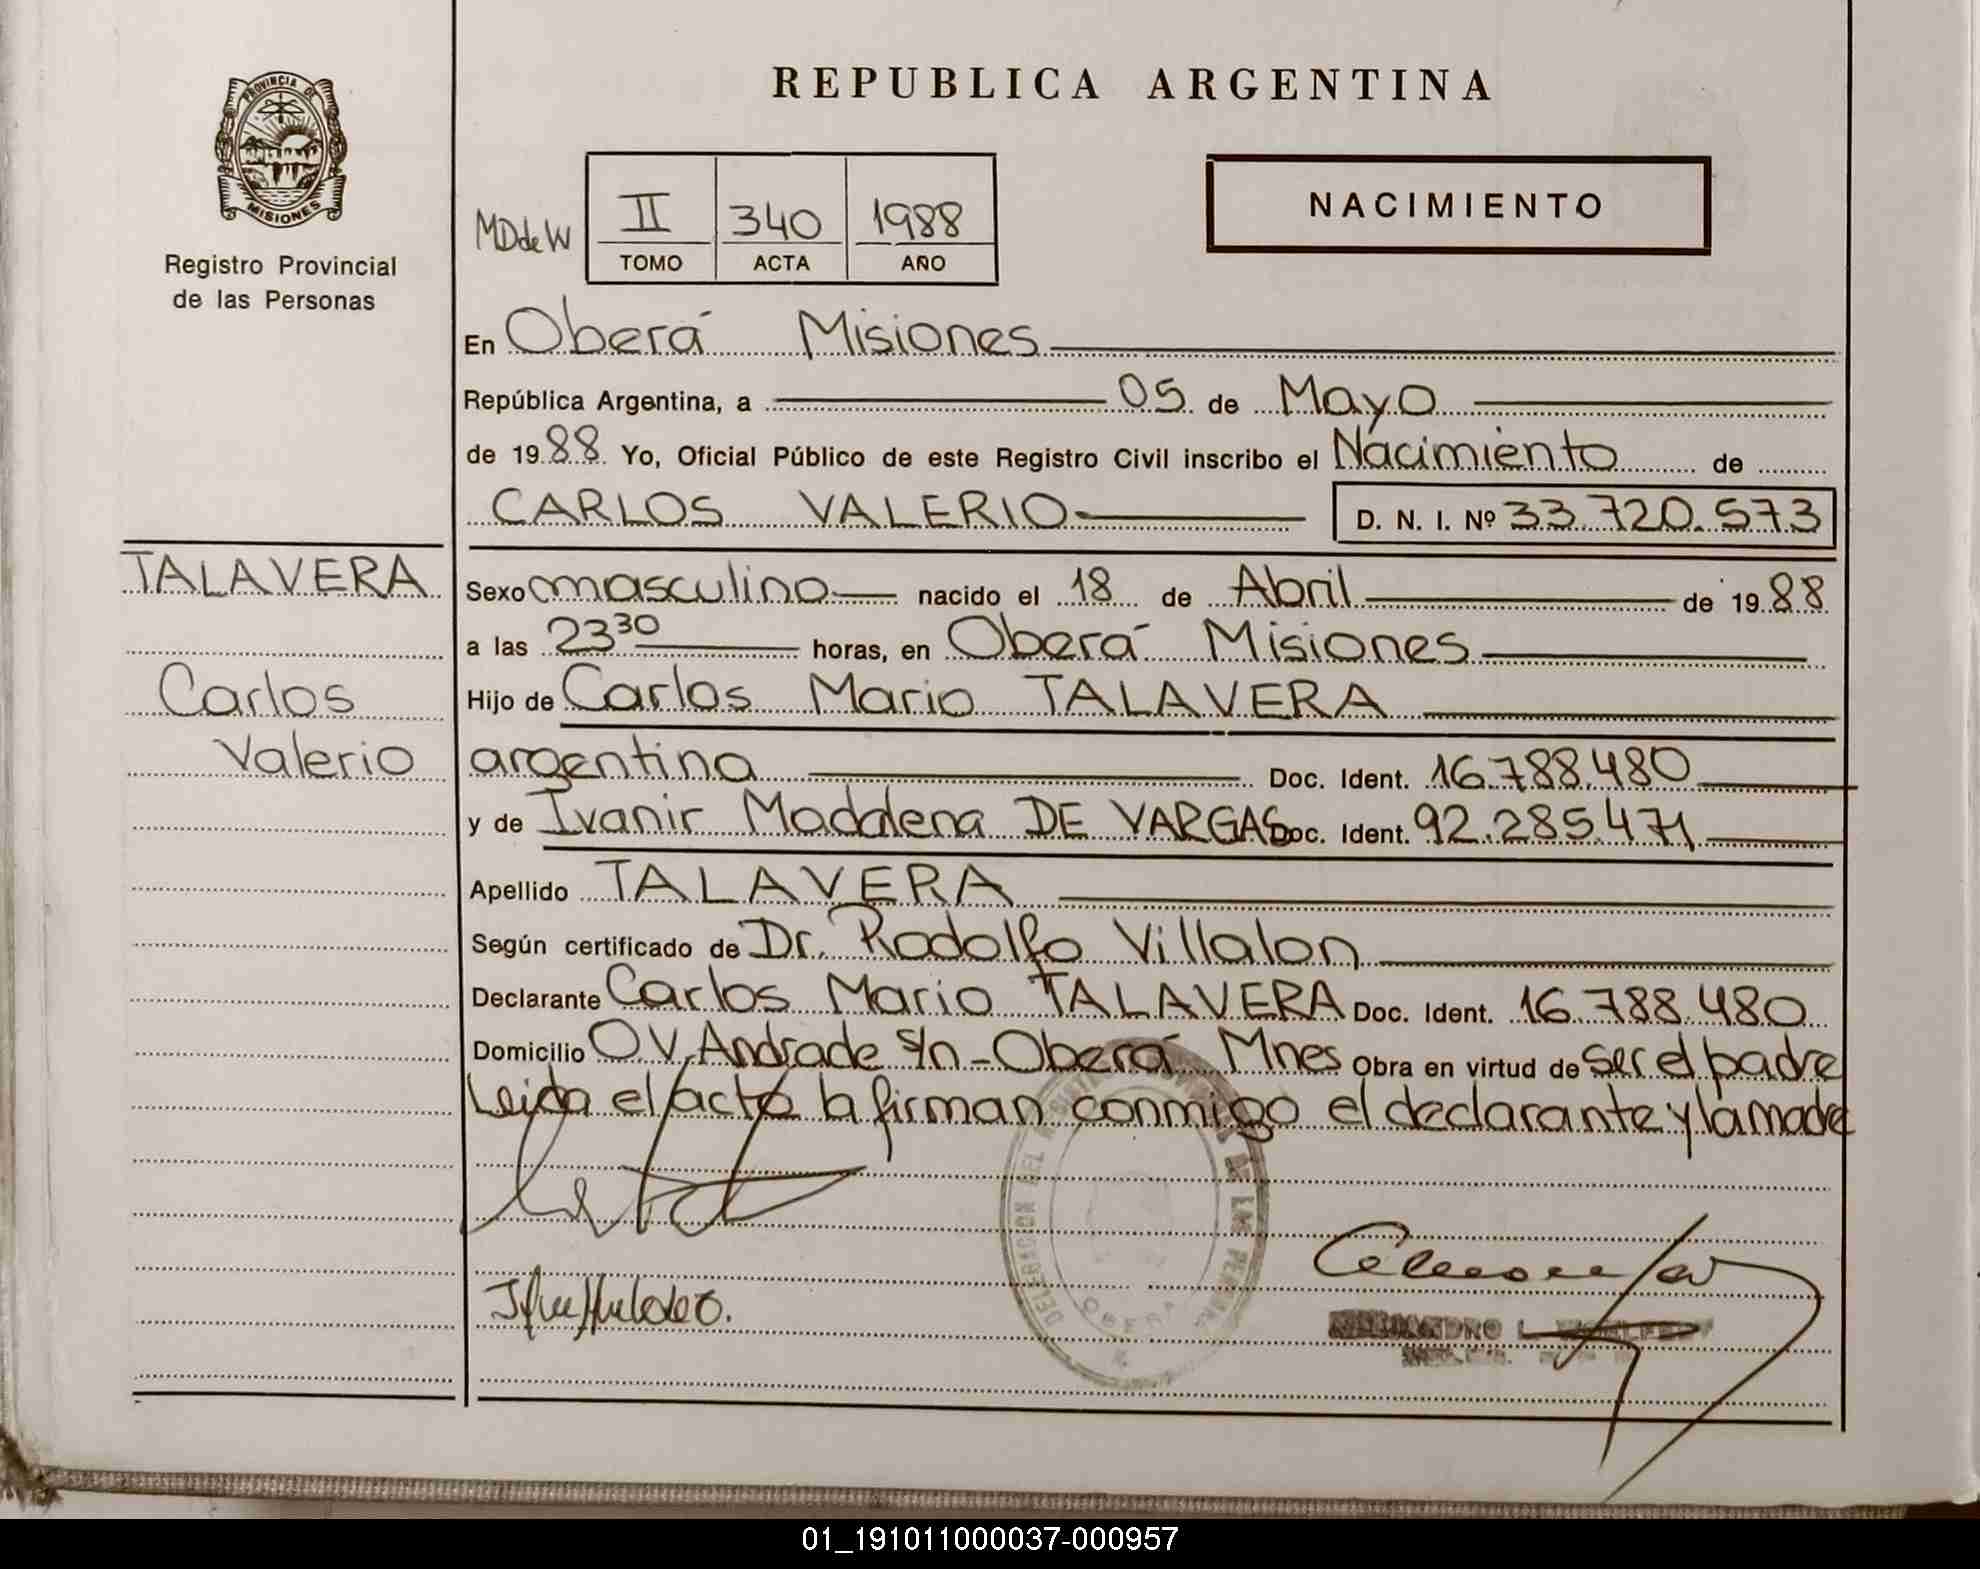 PROVINCIA DE
MISIONES
Registro Provincial
de las Personas
REPUBLICA ARGENTINA
NACIMIENTO
MDdeW II 340 1988
TOMO ACTA AÑO
En Oberá Misiones
República Argentina, a 05 de Mayo
de 1988 Yo, Oficial Público de este Registro Civil inscribo el Nacimiento de
CARLOS VALERIO D. N. I. Nº 33.720.573
TALAVERA
Carlos
Valerio
Sexo masculino nacido el 18 de Abril de 1988
a las 23 30 horas, en Oberá Misiones
Hijo de Carlos Mario TALAVERA
argentina Doc. Ident. 16.788.480
y de Ivanir Maddlena DE VARGAS Doc. Ident. 92.285.471
Apellido TALAVERA
Según certificado de Dr. Rodolfo Villalon
Declarante Carlos Mario TALAVERA Doc. Ident. 16.788.480
Domicilio O.V. Andrade s/n - Oberá Mnes Obra en virtud de ser el padre
Leida el acta la firman conmigo el declarante y la madre
OBERA
01_191011000037-000957